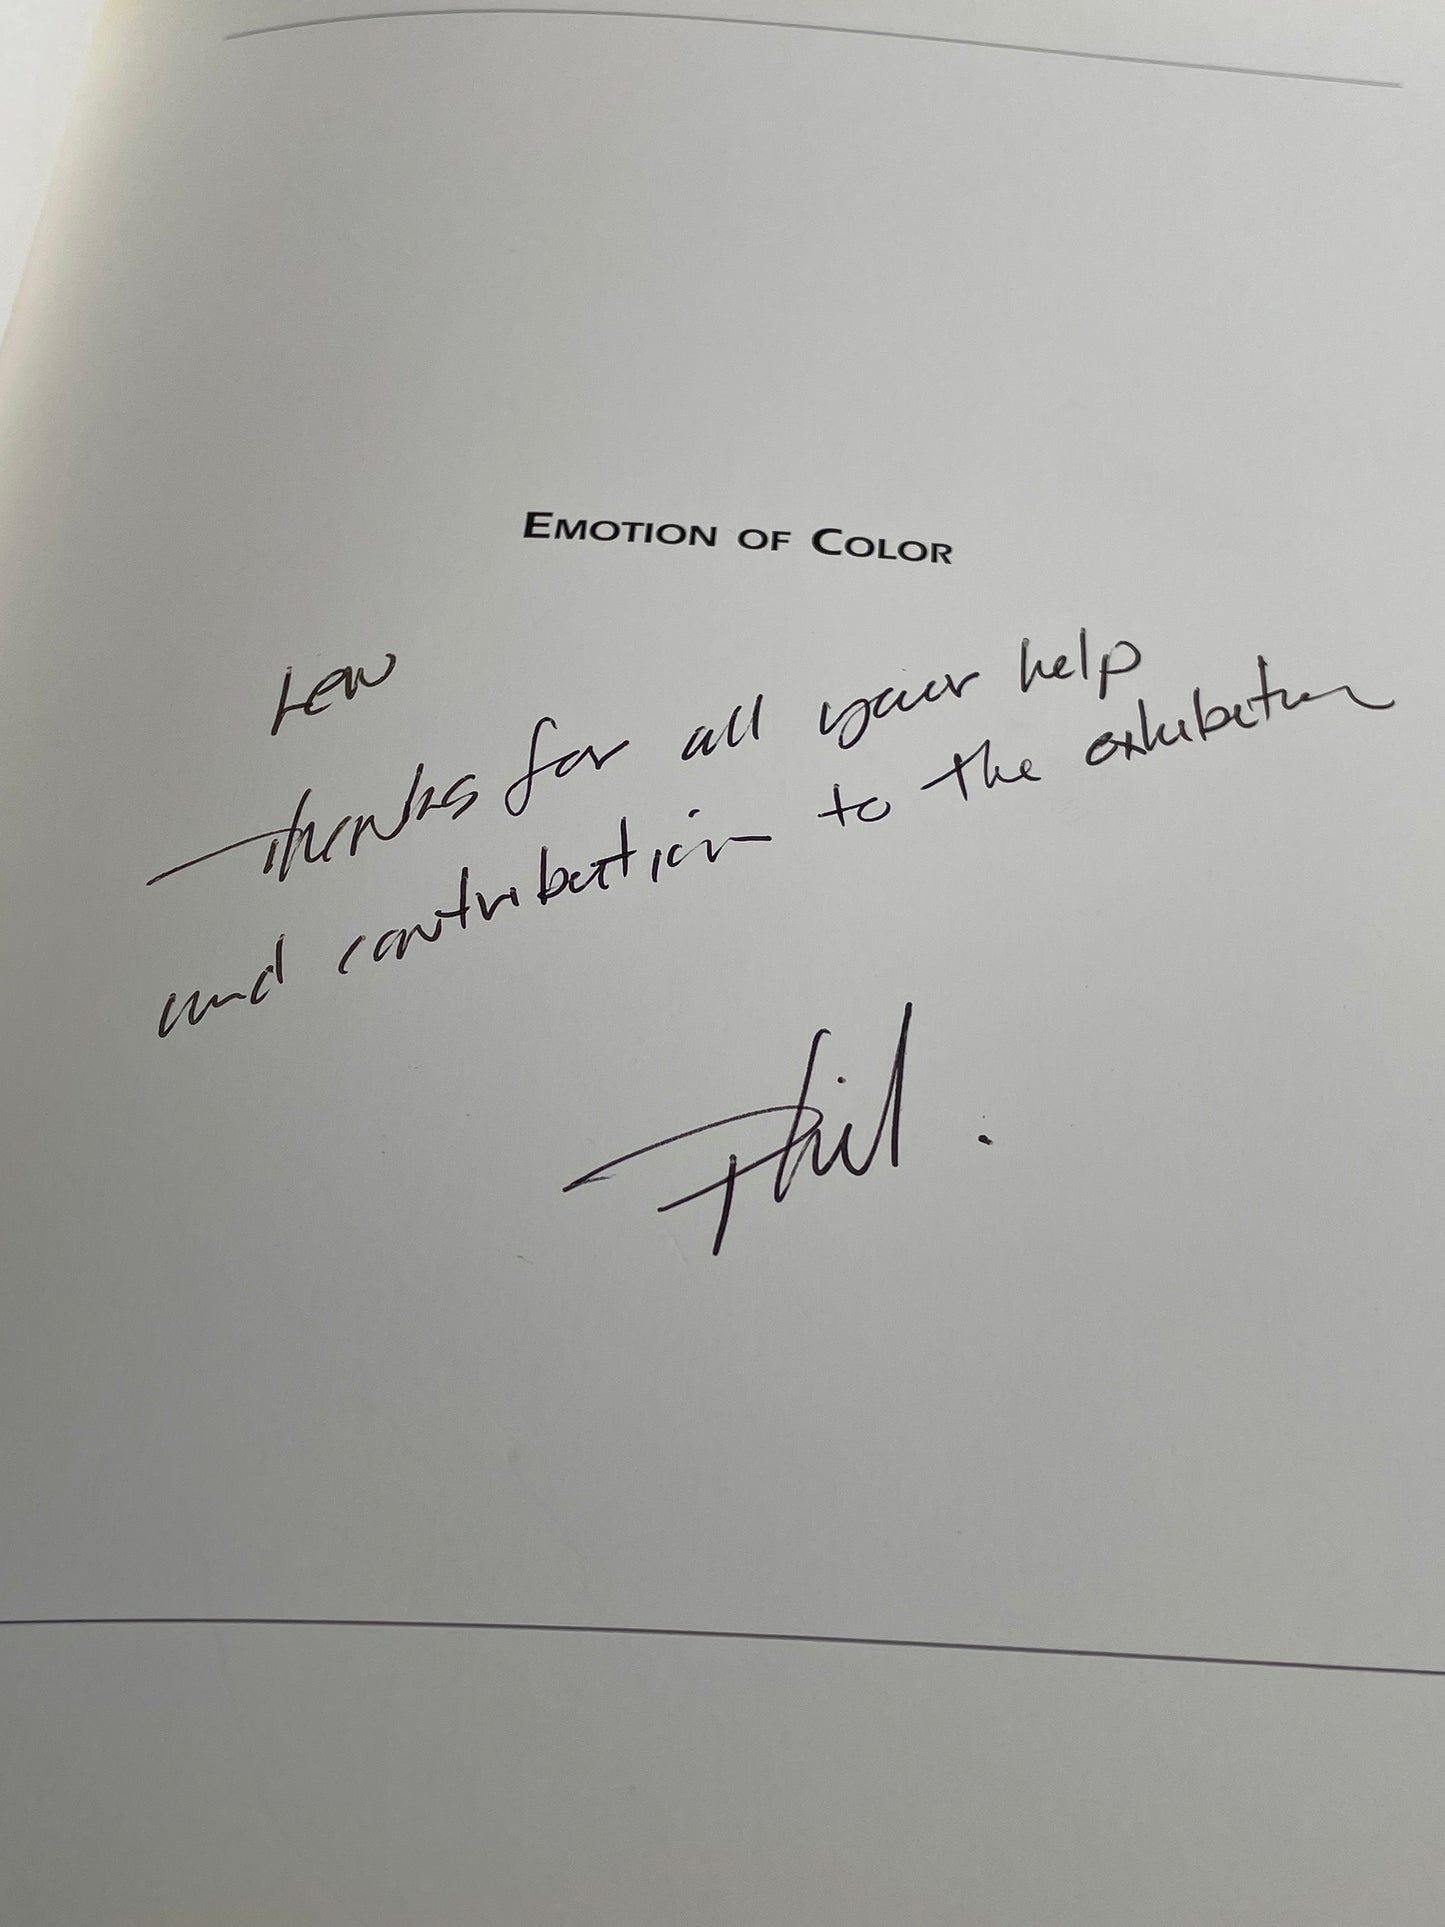 EMOTION OF COLOR
Lew
Thanks for all your help
and contribution to the exhibition
Phil.